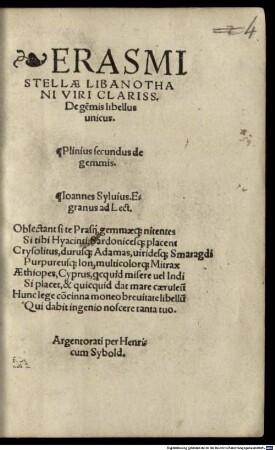 4
ERASMI
STELLÆ LIBANOTHA
NI VIRI CLARISS.
De gẽmis libellus
unicus.
¶Plinius secundus de
gemmis.
¶Ioannes Syluius. Es-
granus ad Lect.
Oblectant si te Prasij, gemmæq; nitentes
Si tibi Hyacinti, Sardonicesq; placent
Crysolitus, durusq; Adamas, uiridesq; Smaragdi
Purpureusq; Ion, multicolorq; Mitrax
Æthiopes, Cyprus, qcquid misere uel Indi
Si placet, & quicquid dat mare cæruleũ
Hunc lege cõcinna moneo breuitate libellũ
Qui dabit ingenio noscere tanta tuo.
Argentorati per Henri
cum Sybold.